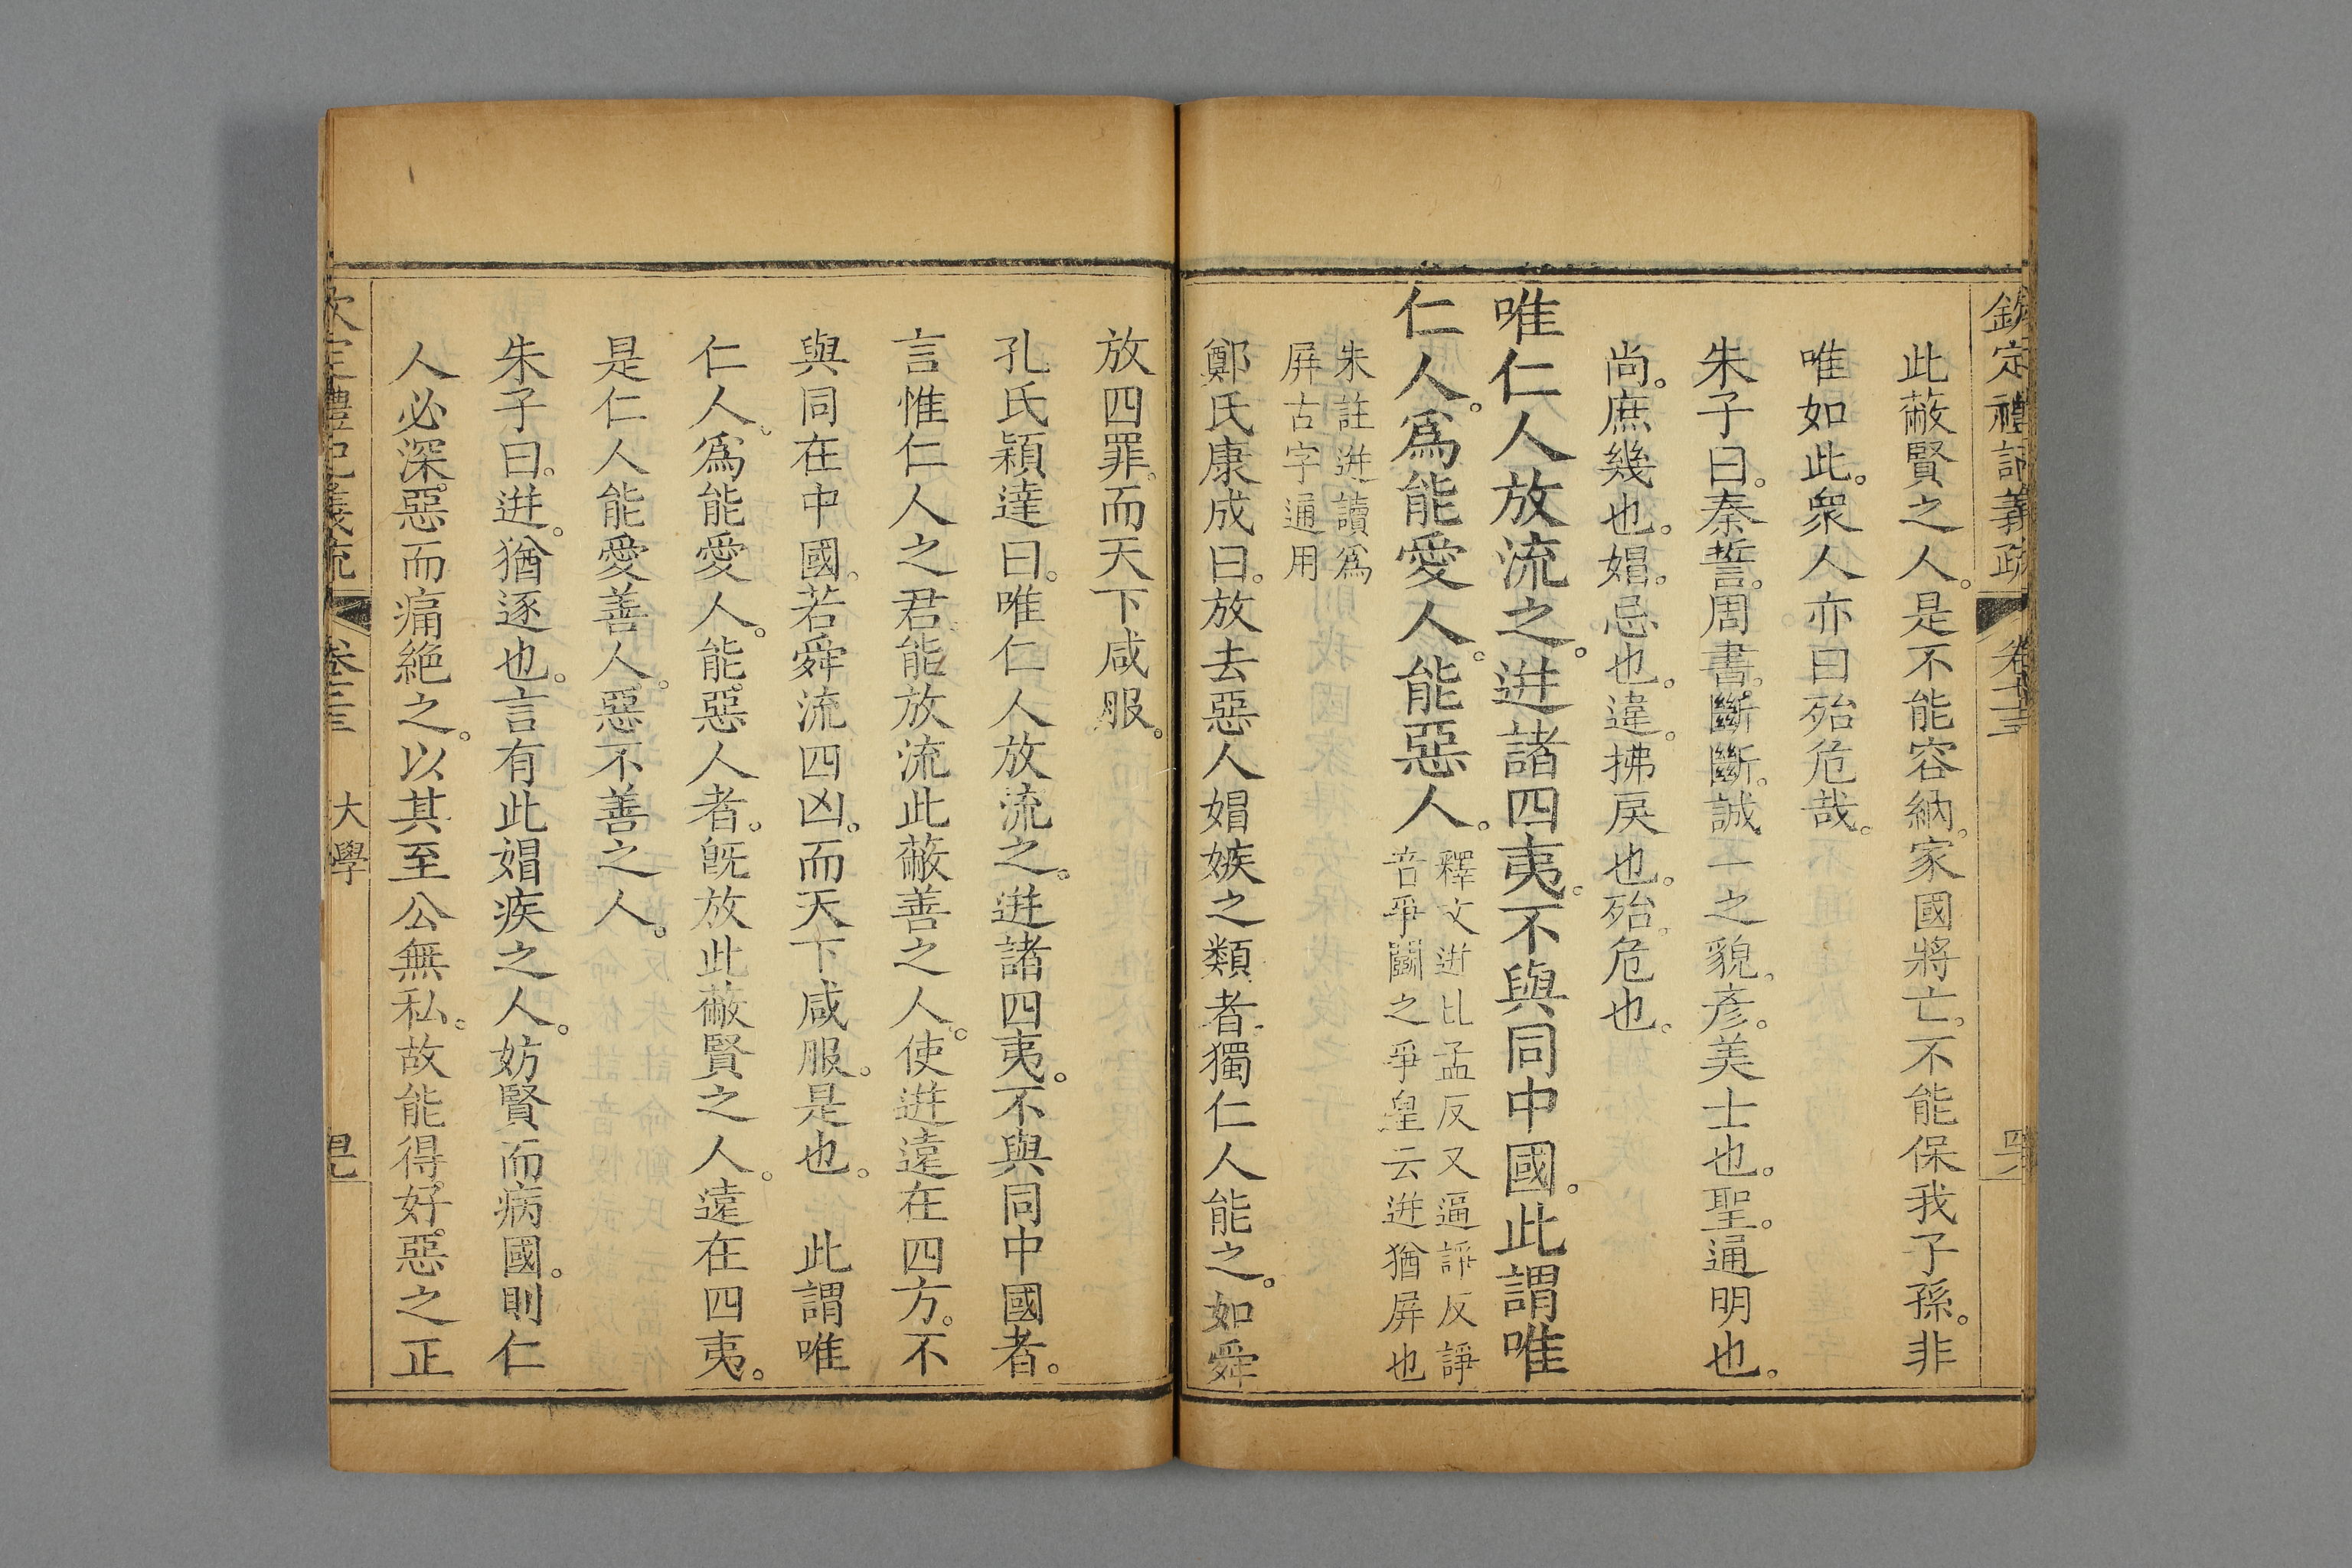 欽定禮記義疏 卷七十三
此蔽賢之人。是不能容納。家國將亡。不能保我子孫。非
唯如此。衆人亦曰殆危哉。
朱子曰。秦誓。周書。斷斷。誠一之貌。彥。美士也。聖。通明也。
尚。庶幾也。媢。忌也。違。拂戾也。殆。危也。
唯仁人放流之。迸諸四夷。不與同中國。此謂唯
仁人。爲能愛人。能惡人。
釋文迸比孟反又逼諍反諍
音爭鬬之爭皇云迸猶屛也
朱註迸讀爲
屛古字通用
鄭氏康成曰。放去惡人媢嫉之類者。獨仁人能之。如舜
放四罪。而天下咸服。
孔氏穎達曰。唯仁人放流之。迸諸四夷。不與同中國者。
言惟仁人之君能放流此蔽善之人。使迸遠在四方。不
與同在中國。若舜流四凶。而天下咸服。是也。 此謂唯
仁人。爲能愛人。能惡人者。旣放此蔽賢之人。遠在四夷。
是仁人能愛善人。惡不善之人。
朱子曰。迸。猶逐也。言有此媢疾之人。妨賢而病國。則仁
人必深惡而痛絕之。以其至公無私。故能得好惡之正
大學